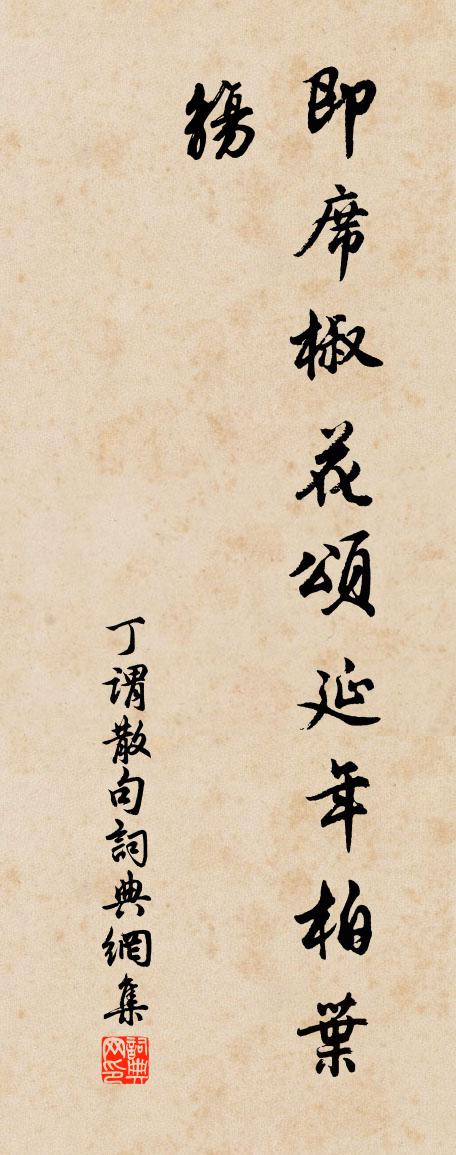 即席椒花頌延年柏葉
觴
丁謂散句詞典網集
詞典网印